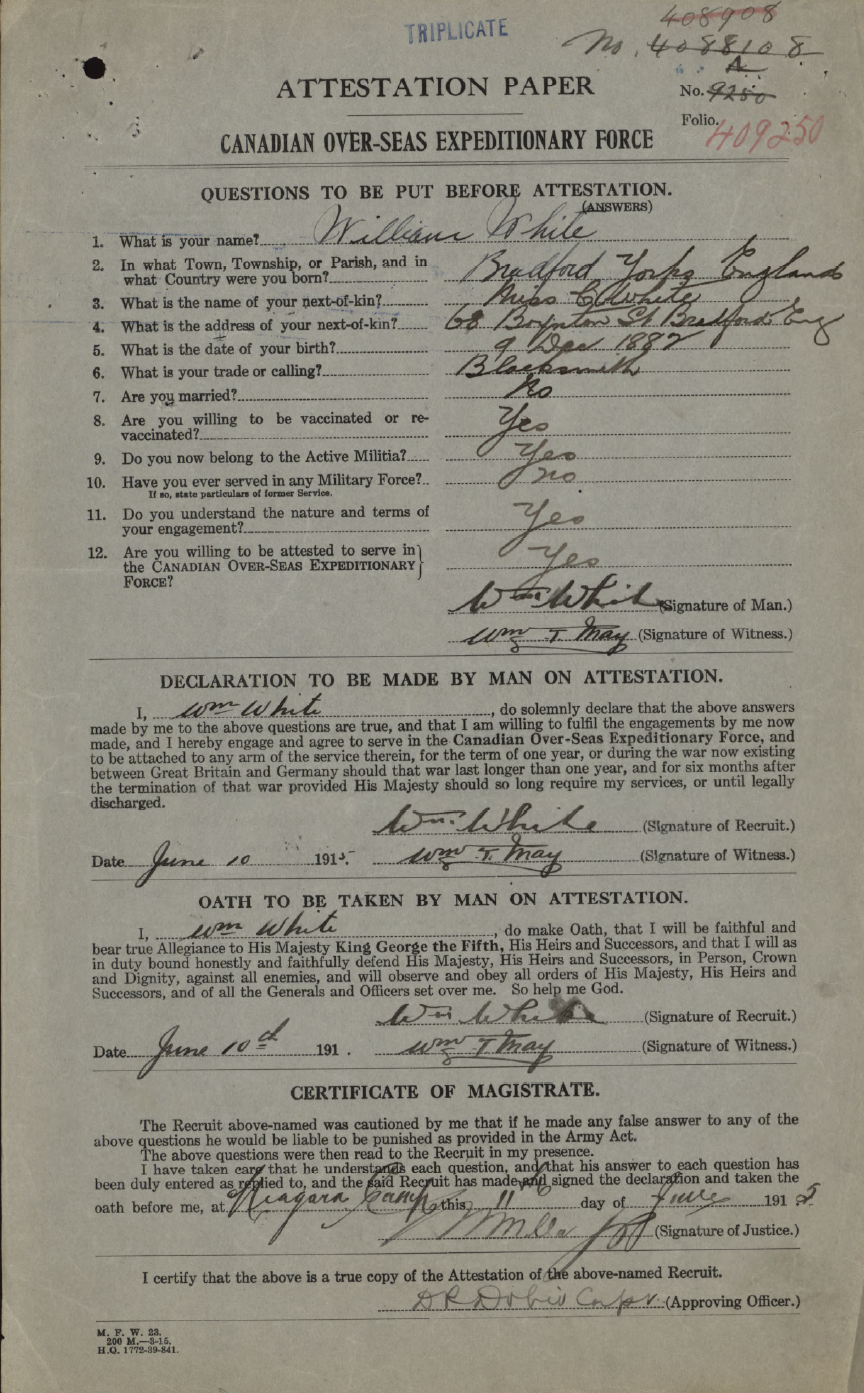 TRIPLICATE
408908
No. 4088108
A
ATTESTATION PAPER
No. 9250
Folio.
409250
CANADIAN OVER-SEAS EXPEDITIONARY FORCE
QUESTIONS TO BE PUT BEFORE ATTESTATION.
(ANSWERS)
1. What is your name? William White
2. In what Town, Township, or Parish, and in
what Country were you born? Bradford Yorks England
3. What is the name of your next-of-kin? Miss C White
4. What is the address of your next-of-kin? 68 Boynton St Bradford Eng
5. What is the date of your birth? 9 Dec 1882
6. What is your trade or calling? Blacksmith
7. Are you married? No
8. Are you willing to be vaccinated or re-
vaccinated? Yes
9. Do you now belong to the Active Militia? Yes
10. Have you ever served in any Military Force? no
If so, state particulars of former Service.
11. Do you understand the nature and terms of
your engagement? Yes
12. Are you willing to be attested to serve in
the CANADIAN OVER-SEAS EXPEDITIONARY Yes
FORCE?
Wm White (Signature of Man.)
Wm T. May (Signature of Witness.)
DECLARATION TO BE MADE BY MAN ON ATTESTATION.
I, Wm White, do solemnly declare that the above answers
made by me to the above questions are true, and that I am willing to fulfil the engagements by me now
made, and I hereby engage and agree to serve in the Canadian Over-Seas Expeditionary Force, and
to be attached to any arm of the service therein, for the term of one year, or during the war now existing
between Great Britain and Germany should that war last longer than one year, and for six months after
the termination of that war provided His Majesty should so long require my services, or until legally
discharged.
Wm. White (Signature of Recruit.)
Date June 10 1915. Wm T. May (Signature of Witness.)
OATH TO BE TAKEN BY MAN ON ATTESTATION.
I, Wm White, do make Oath, that I will be faithful and
bear true Allegiance to His Majesty King George the Fifth, His Heirs and Successors, and that I will as
in duty bound honestly and faithfully defend His Majesty, His Heirs and Successors, in Person, Crown
and Dignity, against all enemies, and will observe and obey all orders of His Majesty, His Heirs and
Successors, and of all the Generals and Officers set over me. So help me God.
Wm White (Signature of Recruit.)
Date June 10th 191 . Wm T May (Signature of Witness.)
CERTIFICATE OF MAGISTRATE.
The Recruit above-named was cautioned by me that if he made any false answer to any of the
above questions he would be liable to be punished as provided in the Army Act.
The above questions were then read to the Recruit in my presence.
I have taken care that he understands each question, and that his answer to each question has
been duly entered as replied to, and the said Recruit has made and signed the declaration and taken the
oath before me, at Niagara Camp this 11 day of June 1915
(Signature of Justice.)
I certify that the above is a true copy of the Attestation of the above-named Recruit.
(Approving Officer.)
M. F. W. 23.
200 M.—3-15.
H.Q. 1772-39-841.